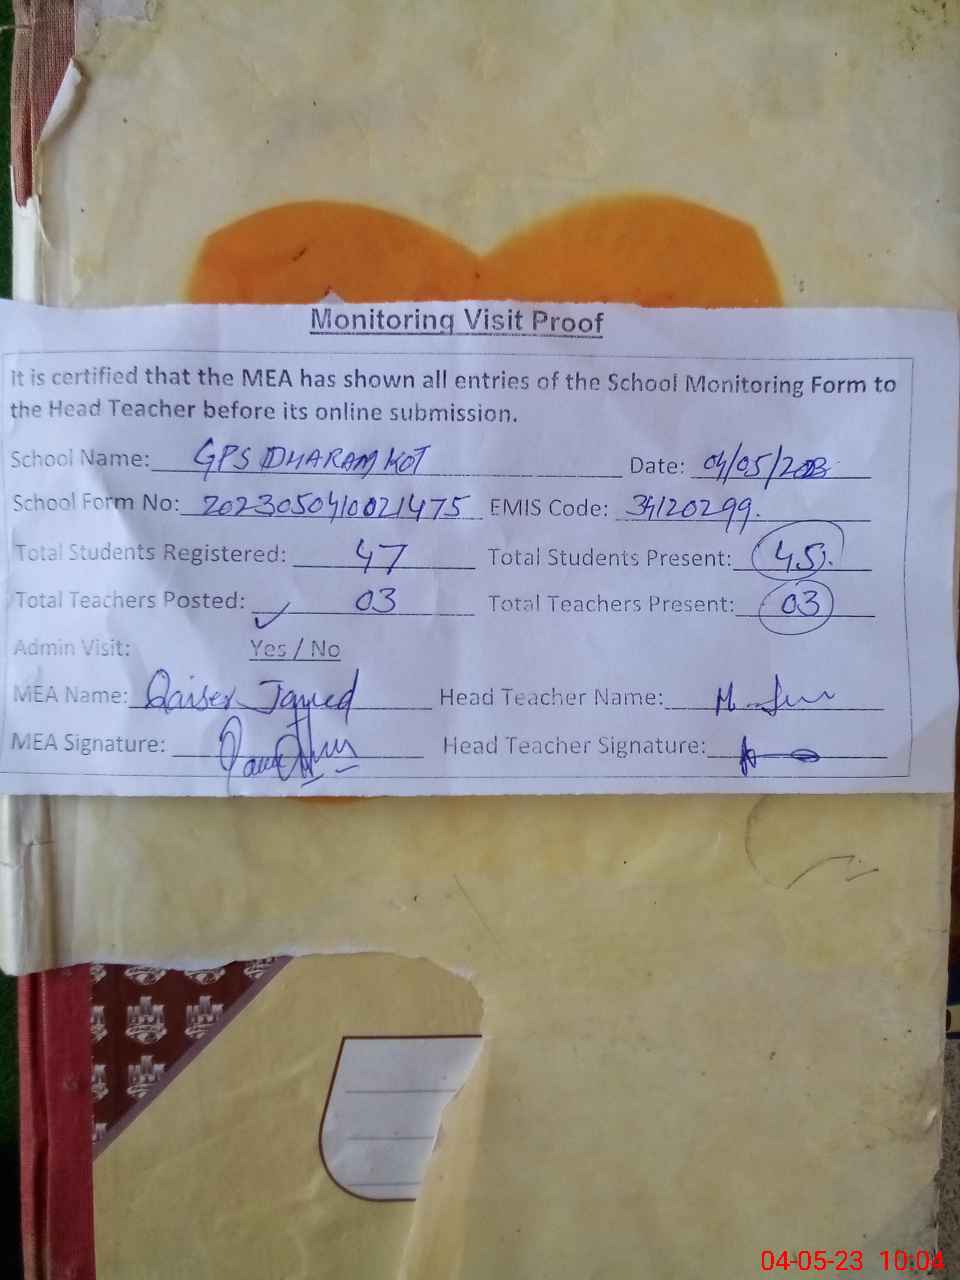 Monitoring Visit Proof
It is certified that the MEA has shown all entries of the School Monitoring Form to
the Head Teacher before its online submission.
School Name: GPS DHARAM KOT Date: 04/05/2023
School Form No: 2023050410021475 EMIS Code: 34120299.
Total Students Registered: 47 Total Students Present: 45.
Total Teachers Posted: 03 Total Teachers Present: 03
Admin Visit: Yes / No
MEA Name: Qaiser Javed Head Teacher Name: M.
MEA Signature: Head Teacher Signature:
04-05-23 10:04